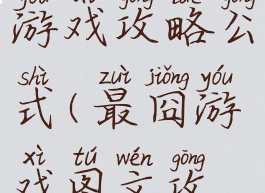 yóu xì gōng lüè gōng
游戏攻略公
shì zuì jiǒng yóu
式(最囧游
xì tú wén gōng
戏图文攻